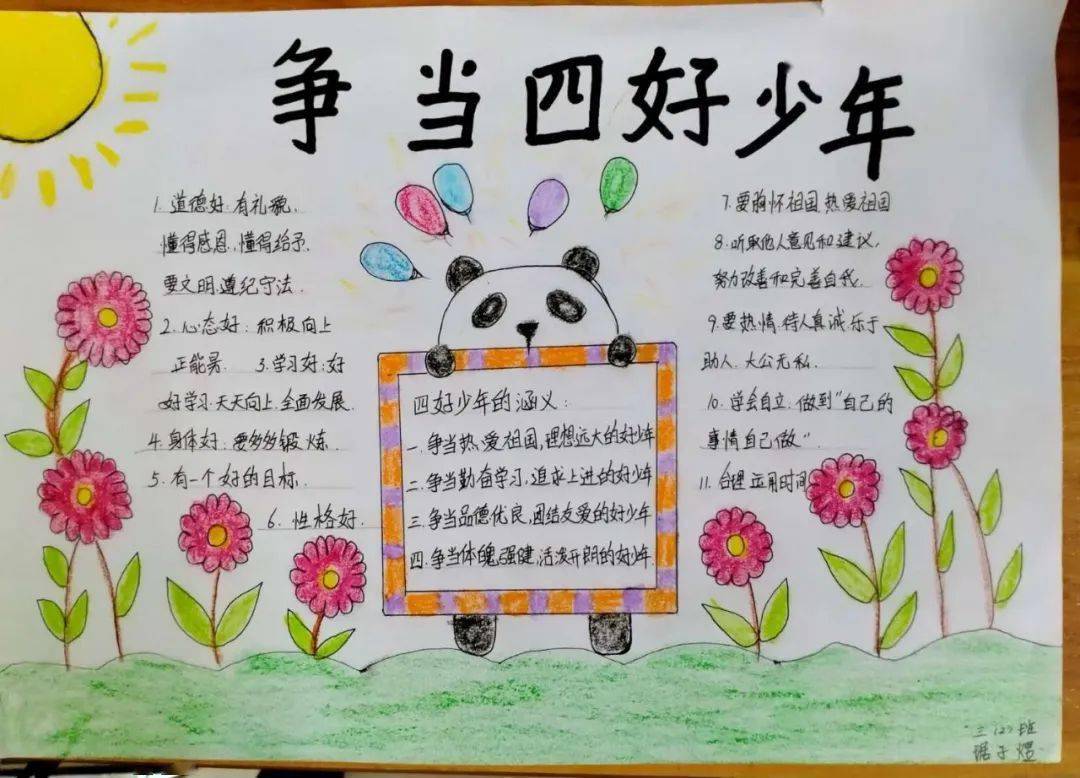 争当四好少年
1. 道德好:有礼貌,
懂得感恩,懂得给予,
要文明,遵纪守法.
2. 心态好:积极向上
正能量. 3. 学习好:好
好学习,天天向上,全面发展.
4. 身体好:要多多锻炼.
5. 有一个好的目标.
6. 性格好.
四好少年的涵义:
一.争当热爱祖国,理想远大的好少年
二.争当勤奋学习,追求上进的好少年
三.争当品德优良,团结友爱的好少年
四.争当体魄强健,活泼开朗的好少年.
7. 要胸怀祖国,热爱祖国
8. 听取他人意见和建议,
努力改善和完善自我.
9. 要热情,待人真诚,乐于
助人.大公无私.
10. 学会自立.做到"自己的
事情自己做".
11. 合理运用时间
三(2)班